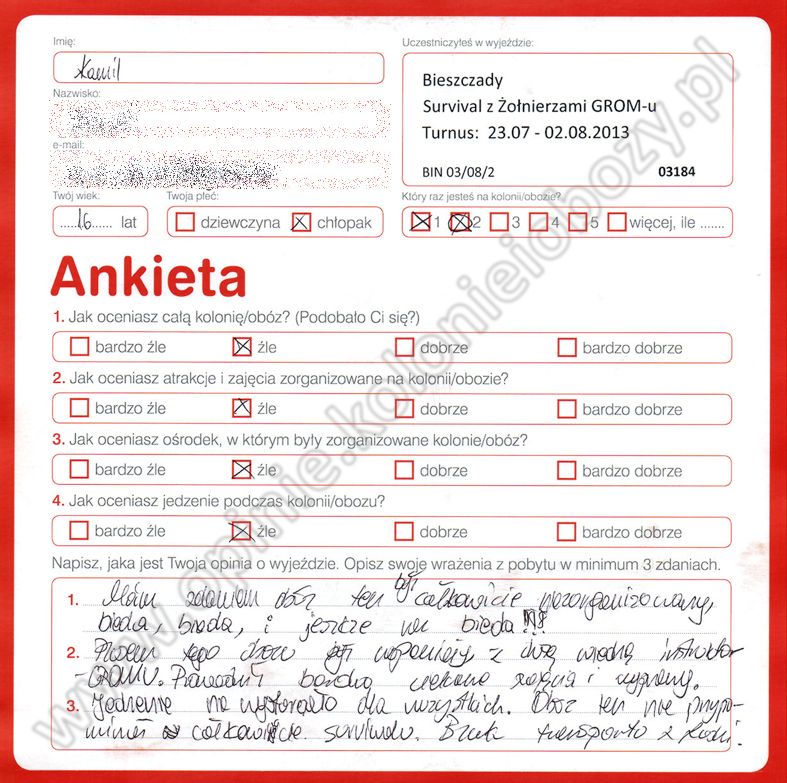 Imię:
Kamil
Uczestniczyłeś w wyjeździe:
Bieszczady
Survival z Żołnierzami GROM-u
Turnus: 23.07 - 02.08.2013
BIN 03/08/2 03184
Nazwisko:
e-mail:
Twój wiek: Twoja płeć: Który raz jesteś na kolonii/obozie?
16 lat dziewczyna chłopak 1 2 3 4 5 więcej, ile .......
Ankieta
1. Jak oceniasz całą kolonię/obóz? (Podobało Ci się?)
bardzo źle źle dobrze bardzo dobrze
2. Jak oceniasz atrakcje i zajęcia zorganizowane na kolonii/obozie?
bardzo źle źle dobrze bardzo dobrze
3. Jak oceniasz ośrodek, w którym były zorganizowane kolonie/obóz?
bardzo źle źle dobrze bardzo dobrze
4. Jak oceniasz jedzenie podczas kolonii/obozu?
bardzo źle źle dobrze bardzo dobrze
Napisz, jaka jest Twoja opinia o wyjeździe. Opisz swoje wrażenia z pobytu w minimum 3 zdaniach.
1. Moim zdaniem obóz ten był całkowicie niezorganizowany,
bieda, bieda, i jeszcze raz bieda!!!
2. tego obozu był wspaniały, z dużą wiedzą instruktor
GROMU. Prowadził bardzo ciekawe zajęcia i wyprawy.
3. Jedzenie nie wystarczało dla wszystkich. Obóz ten nie przypo-
minał całkowicie survivalu. Brak transportu z Łodzi!
www.opinie.kolonieiobozy.pl